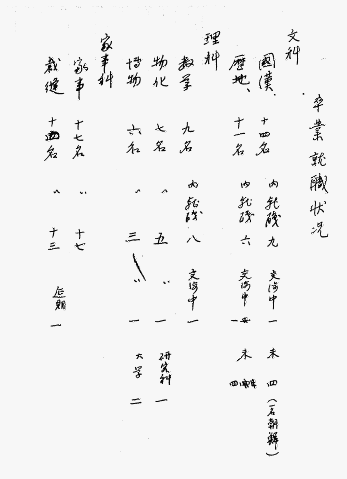 卒業就職状況
文科
國漢、 十四名 内就職 九 交渉中 一 未 四 (一名朝鮮)
歴地、 十一名 内就職 六 交渉中 一 未 四
理科
数学 九名 内就職 八 交渉中 一
物化 七名 〃 五 〃 一 研究科 一
博物 六名 〃 三 〃 一 大学 二
家事科
家事 十七名 〃 十七
裁縫 十四名 〃 十三 延期 一